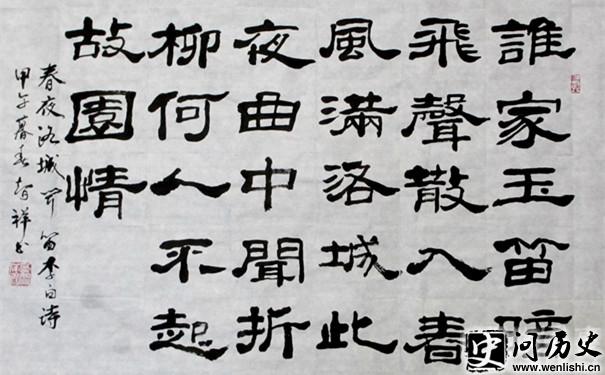 誰家玉笛暗
飛聲散入春
風滿洛城此
夜曲中聞折
柳何人不起
故園情
春夜洛城闻笛李白诗
甲午暮春祥书
问历史
www.wenlishi.cn